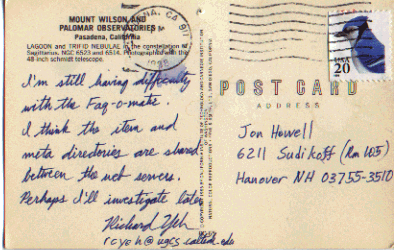 MOUNT WILSON AND
PALOMAR OBSERVATORIES
Pasadena, California
LAGOON and TRIFID NEBULAE in the constellation of
Sagittarius. NGC 6523 and 6514. Photographed with the
48 inch schmidt telescope.
I'm still having difficulty
with the Faq-o-matic.
I think the item and
meta directories are shared
between the web servers.
Perhaps I'll investigate later.
Richard Yeh
rcyeh@ugcs.caltech.edu
CA 911
1998
USA
20
POST CARD
ADDRESS
Jon Howell
6211 Sudikoff (Rm 103)
Hanover NH 03755-3510